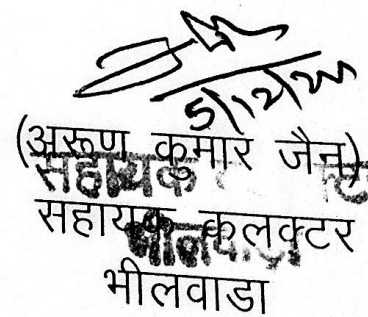 5/12/24
(अरूण कुमार जैन)
सहायक
सहायक कलक्टर
भीलवाडा
भीलवाडा